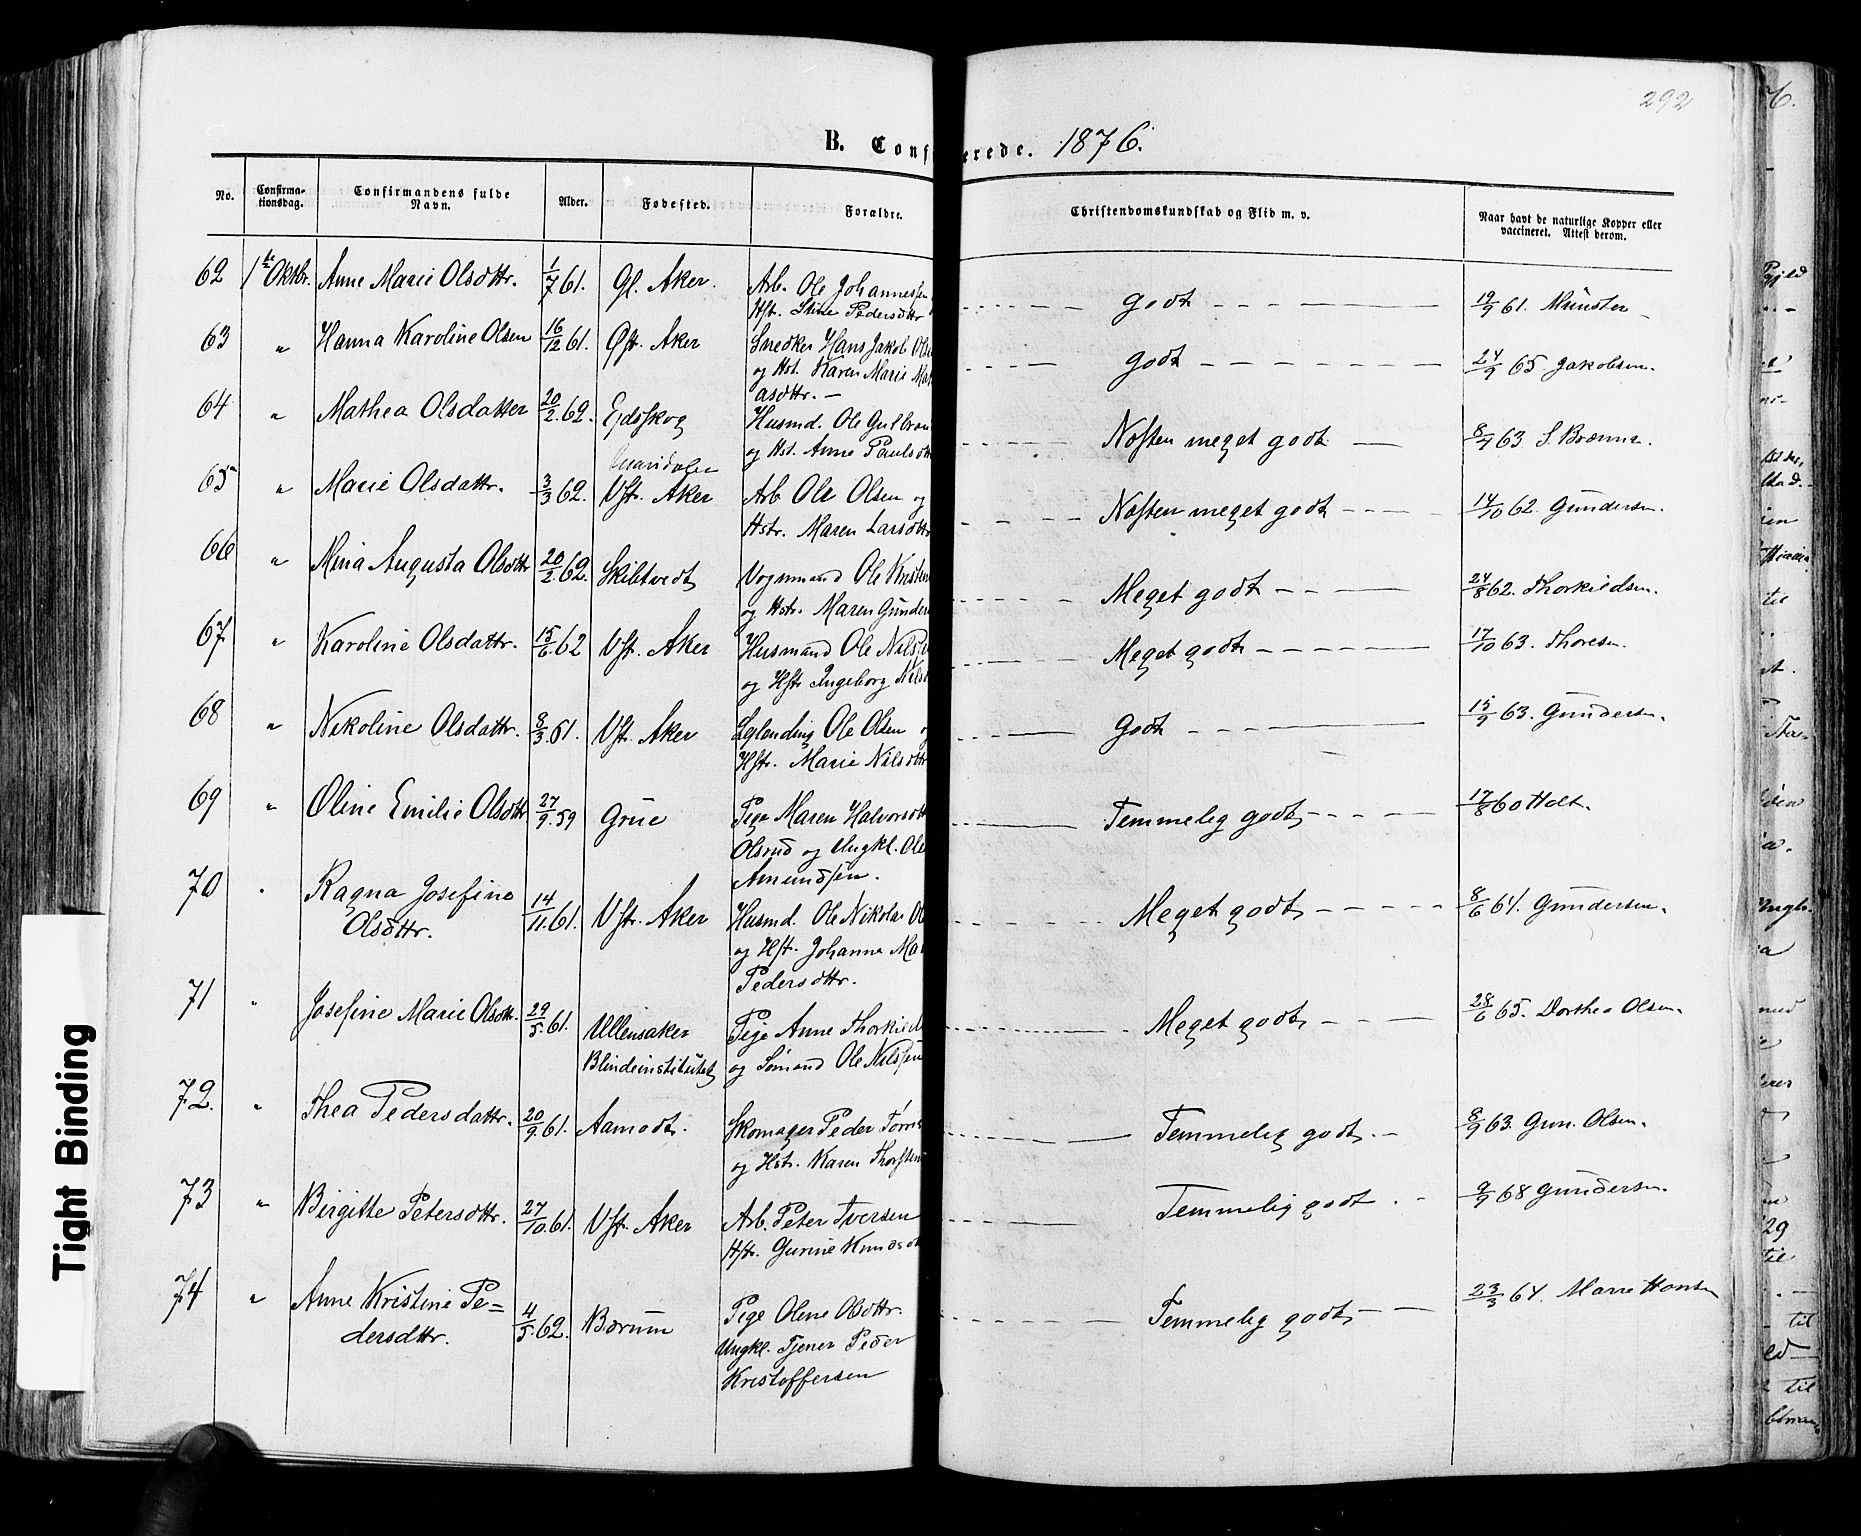 292
B. Conf erede. 1876.
No. Confirma-tionsdag. Confirmandens fulde Navn. Alder. Fødested. Forældre. Christendomskundskab og Flid m. v. Naar havt de naturlige Kopper eller vaccineret. Attest derom.
62 1te Oktbr. Anne Marie Olsdttr. 1/7 61. Gl. Aker. Arb. Ole Johannessen godt 19/9 61. Münster
Hst. Stine Pedersdttr
63 " Hanna Karoline Olsen 16/12 61. Øst. Aker Snedker Hans Jakob Ols godt 24/9 65 Jakobsen.
og Hst. Karen Marie Mat
asdttr. —
64 " Mathea Olsdatter 20/2 62. Eidsskog Husmd. Ole Gulbran Næsten meget godt 8/9 63. S. Brænna.
og Hst. Anne Paulsdtt
65 " Marie Olsdattr. 3/3 62. Maridalen
Vstr. Aker Arb Ole Olsen og Næsten meget godt 14/10 62. Gundersen.
Hstr. Maren Larsdttr
66 " Mina Augusta Olsdttr 20/2 62. Skibtvedt Vognmand Ole Kristen Meget godt 24/8 62. Thorkildsen.
og Hstr. Maren Gunder
67 " Karoline Olsdattr. 15/6 62 Vst. Aker Husmand Ole Nils Meget godt 17/10 63. Thoresen.
og Hstr Ingeborg Nils
68 " Nikoline Olsdattr. 8/3 61. Vst. Aker Leglending Ole Olsen og Godt 15/9 63. Gundersen.
Hstr. Marie Nilsdttr
69 " Oline Emilie Olsdttr 27/9 59 Grue Pige Maren Halvorsdtt Temmelig godt 17/8 60 Holt.
Olsrud og Ungkl. Ole
Amundsen.
70 " Ragna Josefine 14/11 61. Vstr. Aker Husmd. Ole Nikolai Ol Meget godt 8/6 64. Gundersen.
Olsdttr. og Hst. Johanne Mar
Pedersdttr.
71 " Josefine Marie Olsdttr. 29/5 61. Ullensaker Pige Anne Thorkild Meget godt 28/6 65. Dorthea Olsen.
Blindeinstitutet og Sømand Ole Nilssen
72. " Thea Pedersdattr. 20/9 61. Aamodt. Skomager Peder Tøm Temmelig godt. 8/9 63. Gun. Olsen.
og Hstr. Karen Thorsten
73 " Birgitte Petersdttr. 27/10 61. Vst. Aker Arb. Peter Iversen Temmelig godt 9/9 68 Gundersen.
Hstr. Gurine Knudsd
74 " Anne Kristine Pe= 4/5 62. Bærum Pige Olene Olsdttr. Temmelig godt 23/3 64. Marie Hansen
dersdttr. Ungkl. Tjener Peder
Kristoffersen
Tight Binding